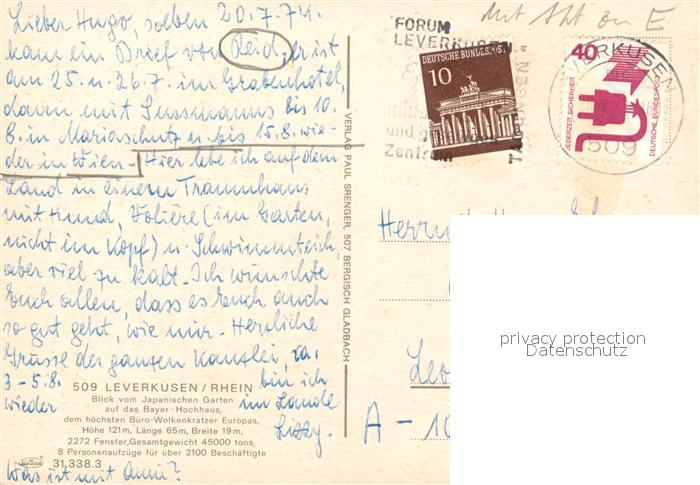 Lieber Hugo, soeben 20.7.74.
kam ein Brief von Reid, er ist
am 25 u. 26.7. im Grabenhotel,
dann mit Sussmanns bis 10.
8. in Mariaschutz u. bis 15.8. wie-
der in Wien. Hier lebe ich auf dem
Land in einem Traumhaus
mit Hund, Volière (im Garten,
nicht im Kopf) u. Schwimmteich
aber viel zu kalt. Ich wünschte
Euch allen, dass es Euch auch
so gut geht, wie mir. Herzliche
Grüsse der ganzen Kanzlei, ca.
3-5.8. bin ich
wieder im Lande
Lizzy.
Was ist mit
509 LEVERKUSEN / RHEIN
Blick vom Japanischen Garten
auf das Bayer-Hochhaus,
dem höchsten Büro-Wolkenkratzer Europas,
Höhe 121 m, Länge 65 m, Breite 19 m,
2272 Fenster, Gesamtgewicht 45000 tons,
8 Personenaufzüge für über 2100 Beschäftigte
31.338.3
VERLAG PAUL SRENGER, 507 BERGISCH GLADBACH
FORUM
LEVERKUSEN
Zentrum
DEUTSCHE BUNDESPOST
10
40
JEDERZEIT SICHERHEIT
DEUTSCHE BUNDESPOST
509
Herrn
A - 10
privacy protection
Datenschutz